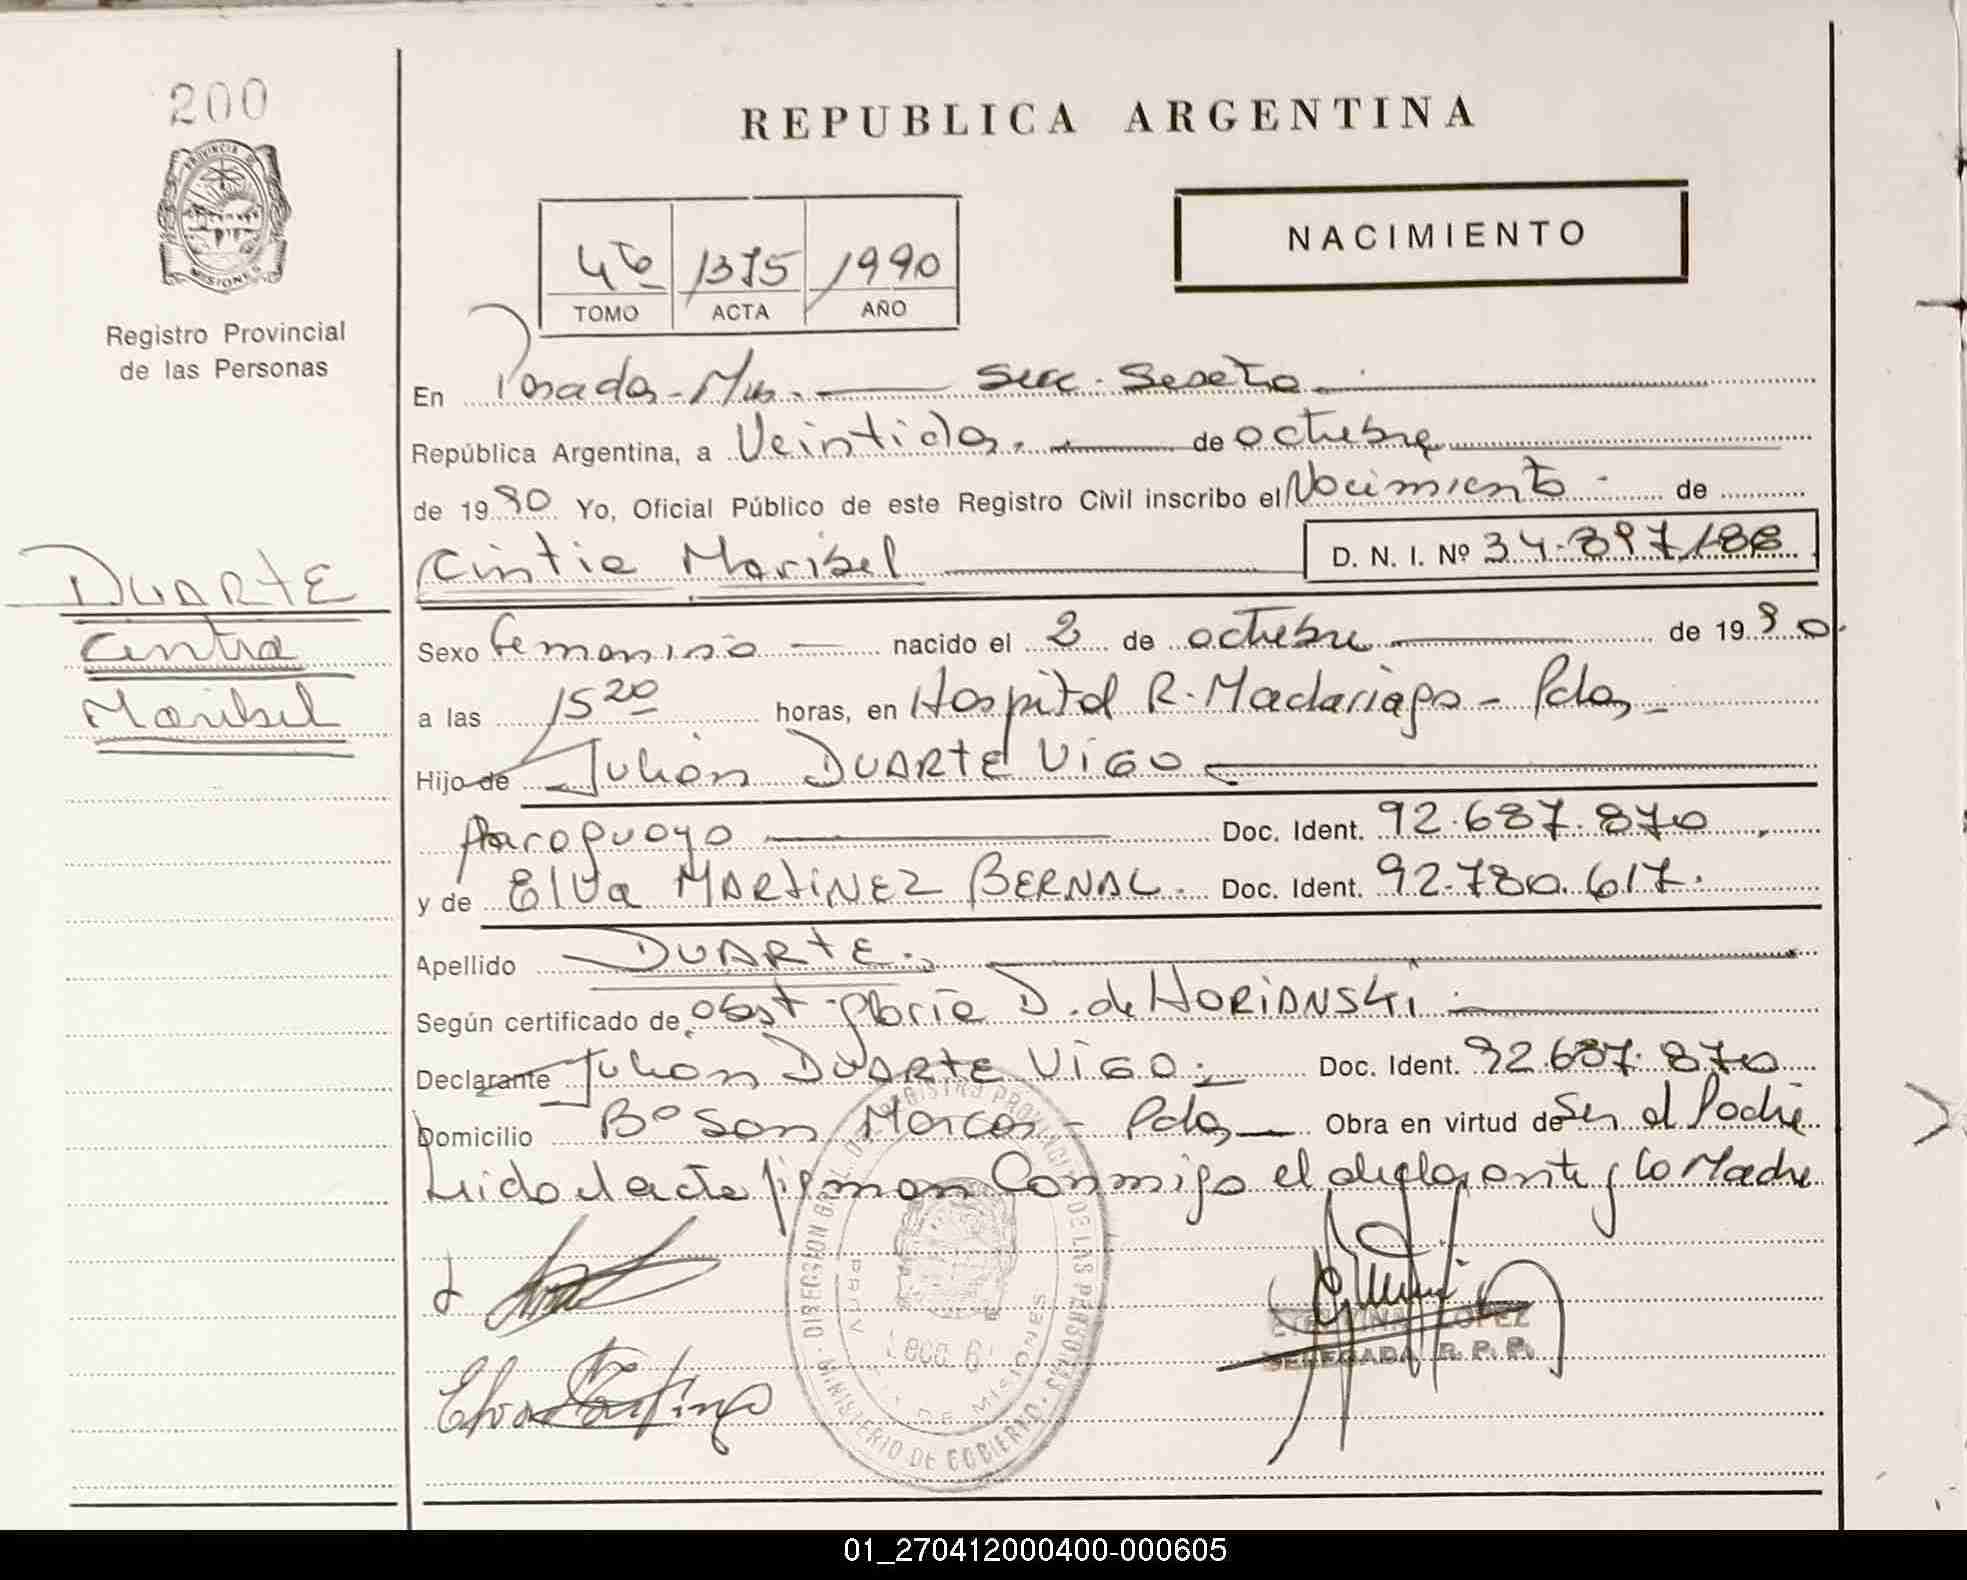 200
PROVINCIA DE
MISIONES
Registro Provincial
de las Personas
REPUBLICA ARGENTINA
NACIMIENTO
4to 1375 1990
TOMO ACTA AÑO
En Posadas - Mns. Secc. Sexta
República Argentina, a Veintidos de octubre
de 1990 Yo, Oficial Público de este Registro Civil inscribo el Nacimiento de
Cintia Maribel D. N. I. Nº 34.897.188
DUARTE
Cintia
Maribel
Sexo femenino nacido el 2 de octubre de 1990.
a las 15 20 horas, en Hospital R. Madariaga - Pdas
Hijo de Julián DUARTE VIGO
Paraguayo Doc. Ident. 92.687.870
y de Elva MARTINEZ BERNAL. Doc. Ident. 92.780.617.
Apellido DUARTE.
Según certificado de Obst. Gloria D. de HORIANSKI
Declarante Julián DUARTE VIGO. Doc. Ident. 92.687.870
Domicilio Bº San Marcos - Pdas Obra en virtud de Ser el Padre
Leido el acta firman Conmigo el declarante y la Madre
DIRECCION GRAL. DEL REGISTRO PROVINCIAL DE LAS PERSONAS
MINISTERIO DE GOBIERNO
DE MISIONES
Secc 6
LOPEZ
DELEGADA R. P. P.
Elva
01_270412000400-000605